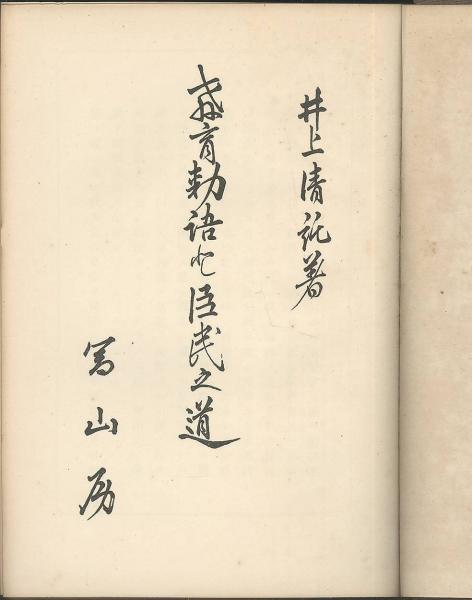 井上清純著
教育勅語と臣民之道
冨山房